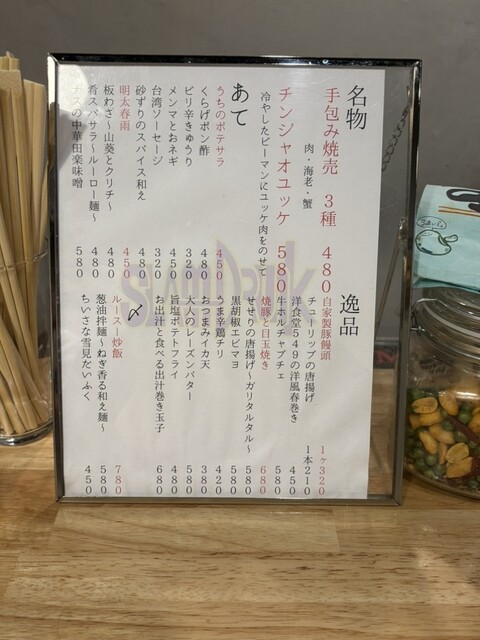 名物
手包み焼売 3種 480
肉・海老・蟹
チンジャオユッケ 580
冷やしたピーマンにユッケ肉をのせて
あて
うちのポテサラ 450
くらげポン酢 480
ピリ辛きゅうり 320
メンマとおネギ 450
台湾ソーセージ 320
砂ずりのスパイス和え 480
明太春雨 450
板わさ～山葵とクリチ～ 480
肴スパサラ～ルーロー麺～ 480
ナスの中華田楽味噌 580
逸品
自家製豚饅頭 1ヶ320
チューリップの唐揚げ 1本210
洋食堂549の洋風春巻き 450
牛ホルチャプチェ 580
焼豚と目玉焼き 680
せせりの唐揚げ～ガリタルタル～ 580
黒胡椒エビマヨ 580
うま辛鶏チリ 420
おつまみイカ天 380
大人のレーズンバター 580
旨塩ポテトフライ 480
お出汁と食べる出汁巻き玉子 680
〆
ルースー炒飯 780
葱油拌麺～ねぎ香る和え麺～ 580
ちいさな雪見だいふく 450